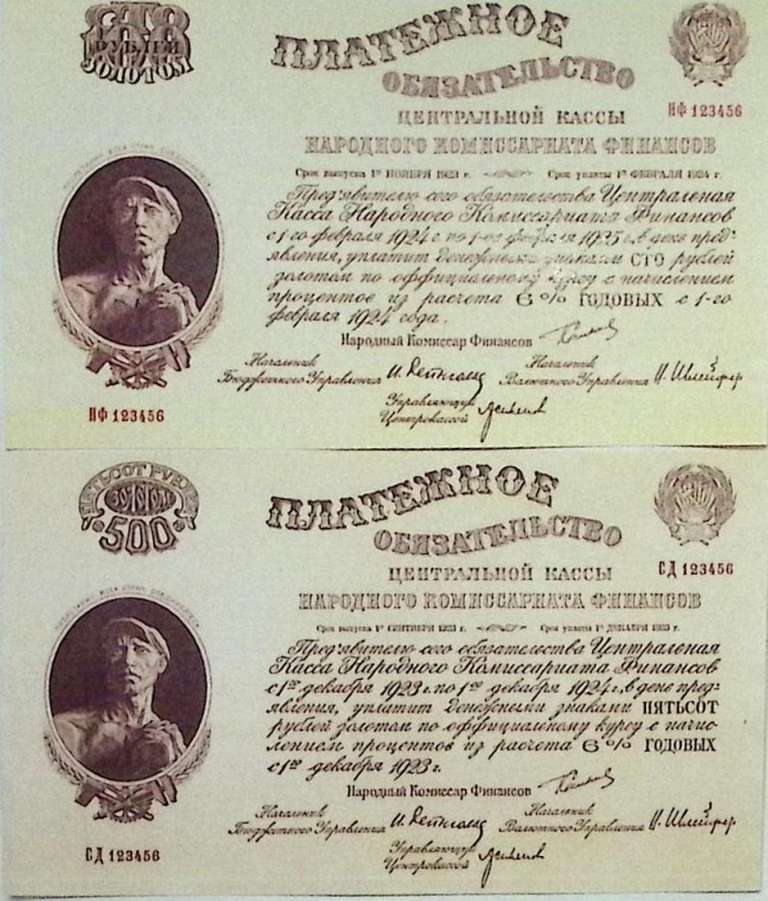 СТО
РУБЛЕЙ
ЗОЛОТОМ
ПЛАТЕЖНОЕ
ОБЯЗАТЕЛЬСТВО
ЦЕНТРАЛЬНОЙ КАССЫ
НФ 123456
НАРОДНОГО КОМИССАРИАТА ФИНАНСОВ
Срок выпуска 1го НОЯБРЯ 1923 г. Срок уплаты 1го ФЕВРАЛЯ 1924 г.
Пред'явителю сего обязательства Центральная
Касса Народного Комиссариата Финансов
с 1-го февраля 1924 г. по 1-ое февраля 1925 г., в день пред'-
явления, уплатит денежными знаками СТО рублей
золотом по оффициальному курсу с начислением
процентов из расчета 6% ГОДОВЫХ с 1-го
февраля 1924 года.
Народный Комиссар Финансов
Начальник
Бюджетного Управления
Начальник
Валютного Управления
Управляющий
Центрокассой
НФ 123456
ПЯТЬСОТ РУБЛЕЙ
ЗОЛОТОМ
500
ПЛАТЕЖНОЕ
ОБЯЗАТЕЛЬСТВО
ЦЕНТРАЛЬНОЙ КАССЫ
СД 123456
НАРОДНОГО КОМИССАРИАТА ФИНАНСОВ
Срок выпуска 1го СЕНТЯБРЯ 1923 г. Срок уплаты 1го ДЕКАБРЯ 1923 г.
Пред'явителю сего обязательства Центральная
Касса Народного Комиссариата Финансов
с 1го декабря 1923 г. по 1ое декабря 1924 г., в день пред'-
явления, уплатит денежными знаками ПЯТЬСОТ
рублей золотом по оффициальному курсу с начис-
лением процентов из расчета 6% ГОДОВЫХ
с 1го декабря 1923 г.
Народный Комиссар Финансов
Начальник
Бюджетного Управления
Начальник
Валютного Управления
Управляющий
Центрокассой
СД 123456